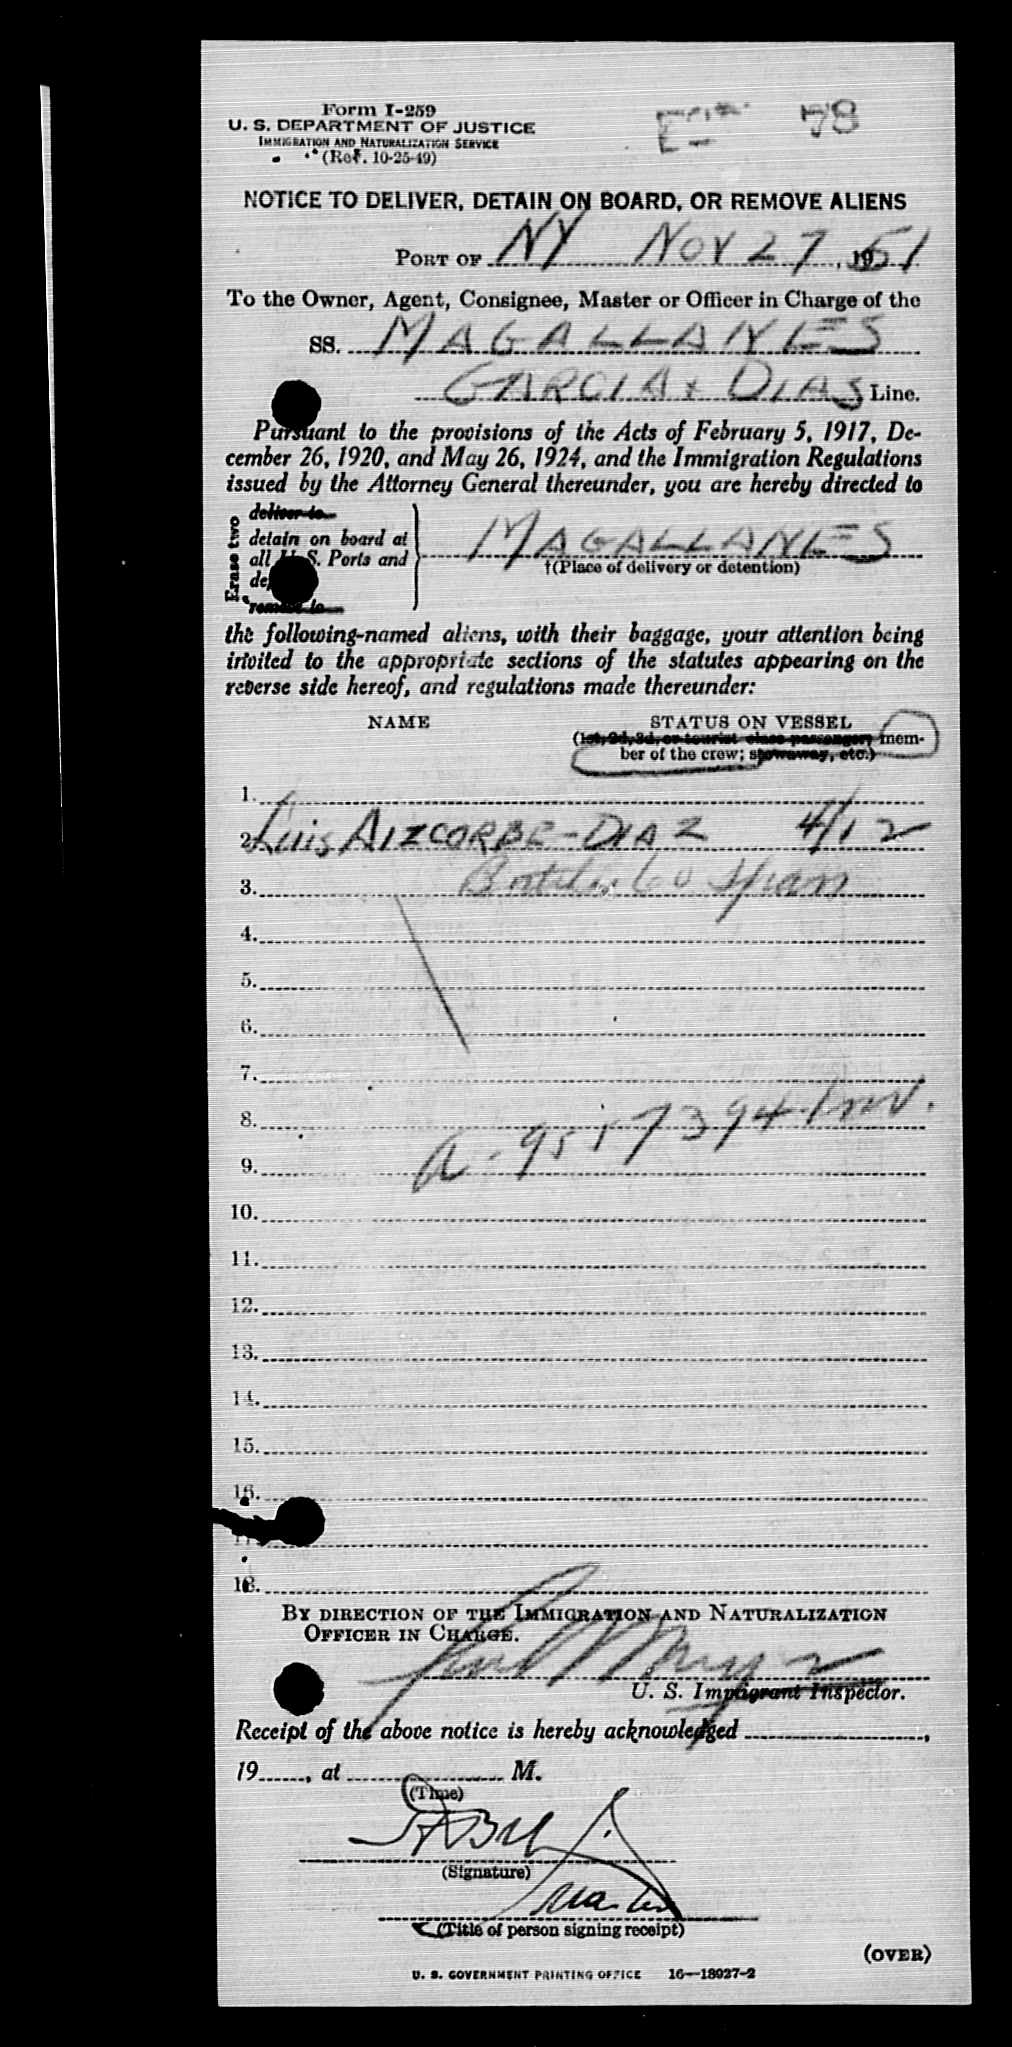 Form I-259
U. S. DEPARTMENT OF JUSTICE
IMMIGRATION AND NATURALIZATION SERVICE
(Rev. 10-25-49)
78
NOTICE TO DELIVER, DETAIN ON BOARD, OR REMOVE ALIENS
PORT OF NY NOV 27, 1951
To the Owner, Agent, Consignee, Master or Officer in Charge of the
SS. MAGALLANES
GARCIA & DIAS Line.
Pursuant to the provisions of the Acts of February 5, 1917, De-
cember 26, 1920, and May 26, 1924, and the Immigration Regulations
issued by the Attorney General thereunder, you are hereby directed to
Erase two
deliver to
detain on board at
all U. S. Ports and
remove to
MAGALLANES
†(Place of delivery or detention)
the following-named aliens, with their baggage, your attention being
invited to the appropriate sections of the statutes appearing on the
reverse side hereof, and regulations made thereunder:
NAME STATUS ON VESSEL
(1st, 2d, 3d, or tourist class passenger; mem-
ber of the crew; stowaway, etc.)
1.
2. Luis AIZCORBE-DIAZ 4/12
3. 60 Span
4.
5.
6.
7.
8.
a-9517394 Inv.
9.
10.
11.
12.
13.
14.
15.
16.
17.
18.
BY DIRECTION OF THE IMMIGRATION AND NATURALIZATION
OFFICER IN CHARGE.
U. S. Immigrant Inspector.
Receipt of the above notice is hereby acknowledged ,
19 , at M.
(Time)
(Signature)
Master
(Title of person signing receipt)
(OVER)
U. S. GOVERNMENT PRINTING OFFICE 16—18927-2